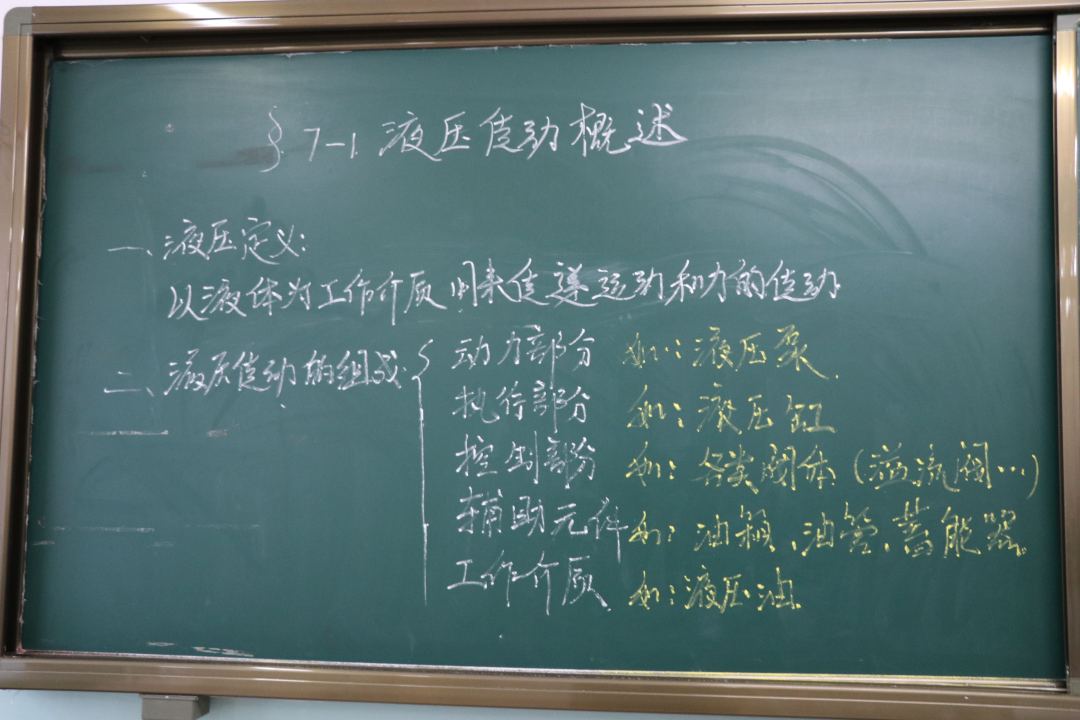 §7-1 液压传动概述
一、液压定义:
以液体为工作介质用来传导运动和力的传动
二、液压传动的组成:
动力部分 如:液压泵.
执行部分 如:液压缸
控制部分 如:各类阀体(溢流阀…)
辅助元件 如:油箱、油管、蓄能器。
工作介质 如:液压油